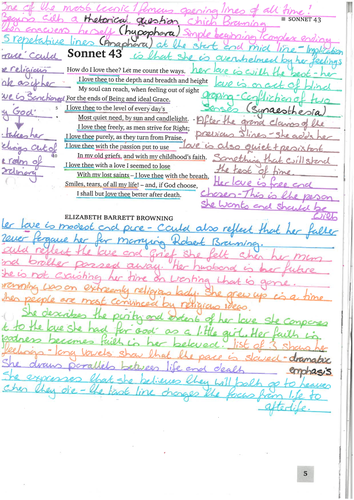 One of the most iconic / famous opening lines of all time!
Begins with a rhetorical question which Browning
■ SONNET 43
then answers herself (hypophora) Simple beginning, Complex ending
5 repetative lines (Anaphora) at the start and mid line - Implication
Sonnet 43
is that she is overwhelmed by her feelings
How do I love thee? Let me count the ways.
I love thee to the depth and breadth and height
My soul can reach, when feeling out of sight
For the ends of Being and ideal Grace.
I love thee to the level of every day's
Most quiet need, by sun and candlelight.
I love thee freely, as men strive for Right;
I love thee purely, as they turn from Praise.
I love thee with the passion put to use
In my old griefs, and with my childhood's faith.
I love thee with a love I seemed to lose
With my lost saints – I love thee with the breath,
Smiles, tears, of all my life! – and, if God choose,
I shall but love thee better after death.
her love is with the soul - her
love is out of blind
Confliction of two
senses (Synaesthesia)
After the grand claims of the
previous 3 lines - she adds her
love is also quiet + persistent
Something that will stand
the test of time.
Her love is free and
chosen - This is the person
she wants and should be
with
ELIZABETH BARRETT BROWNING
Her love is modest and pure - Could also reflect that her father
never forgave her for marrying Robert Browning.
Could reflect the love and grief she felt when her mum
and brother passed away. her husband is her future
she is not exhausting her time on wanting what is gone.
Browning was an extremely religious lady. She grew up in a time
when people are most convinced by religious ideas.
She describes the purity and extent of her love. She compares
it to the love she had for God as a little girl. Her faith in
goodness becomes faith in her beloved. list of 3 shows her
feelings - long vowels show that the pace is slowed - dramatic
emphasis.
She draws parallels between life and death
She expresses that she believes they will both go to heaven
when they die - the last line changes the focus from life to
afterlife.
5